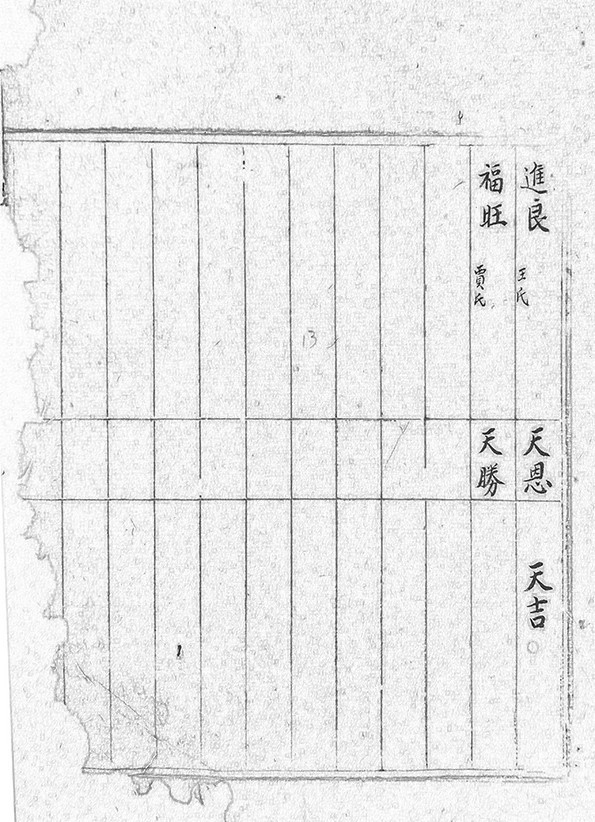 進良 王氏 天恩 天吉
福旺 賈氏 天勝
13